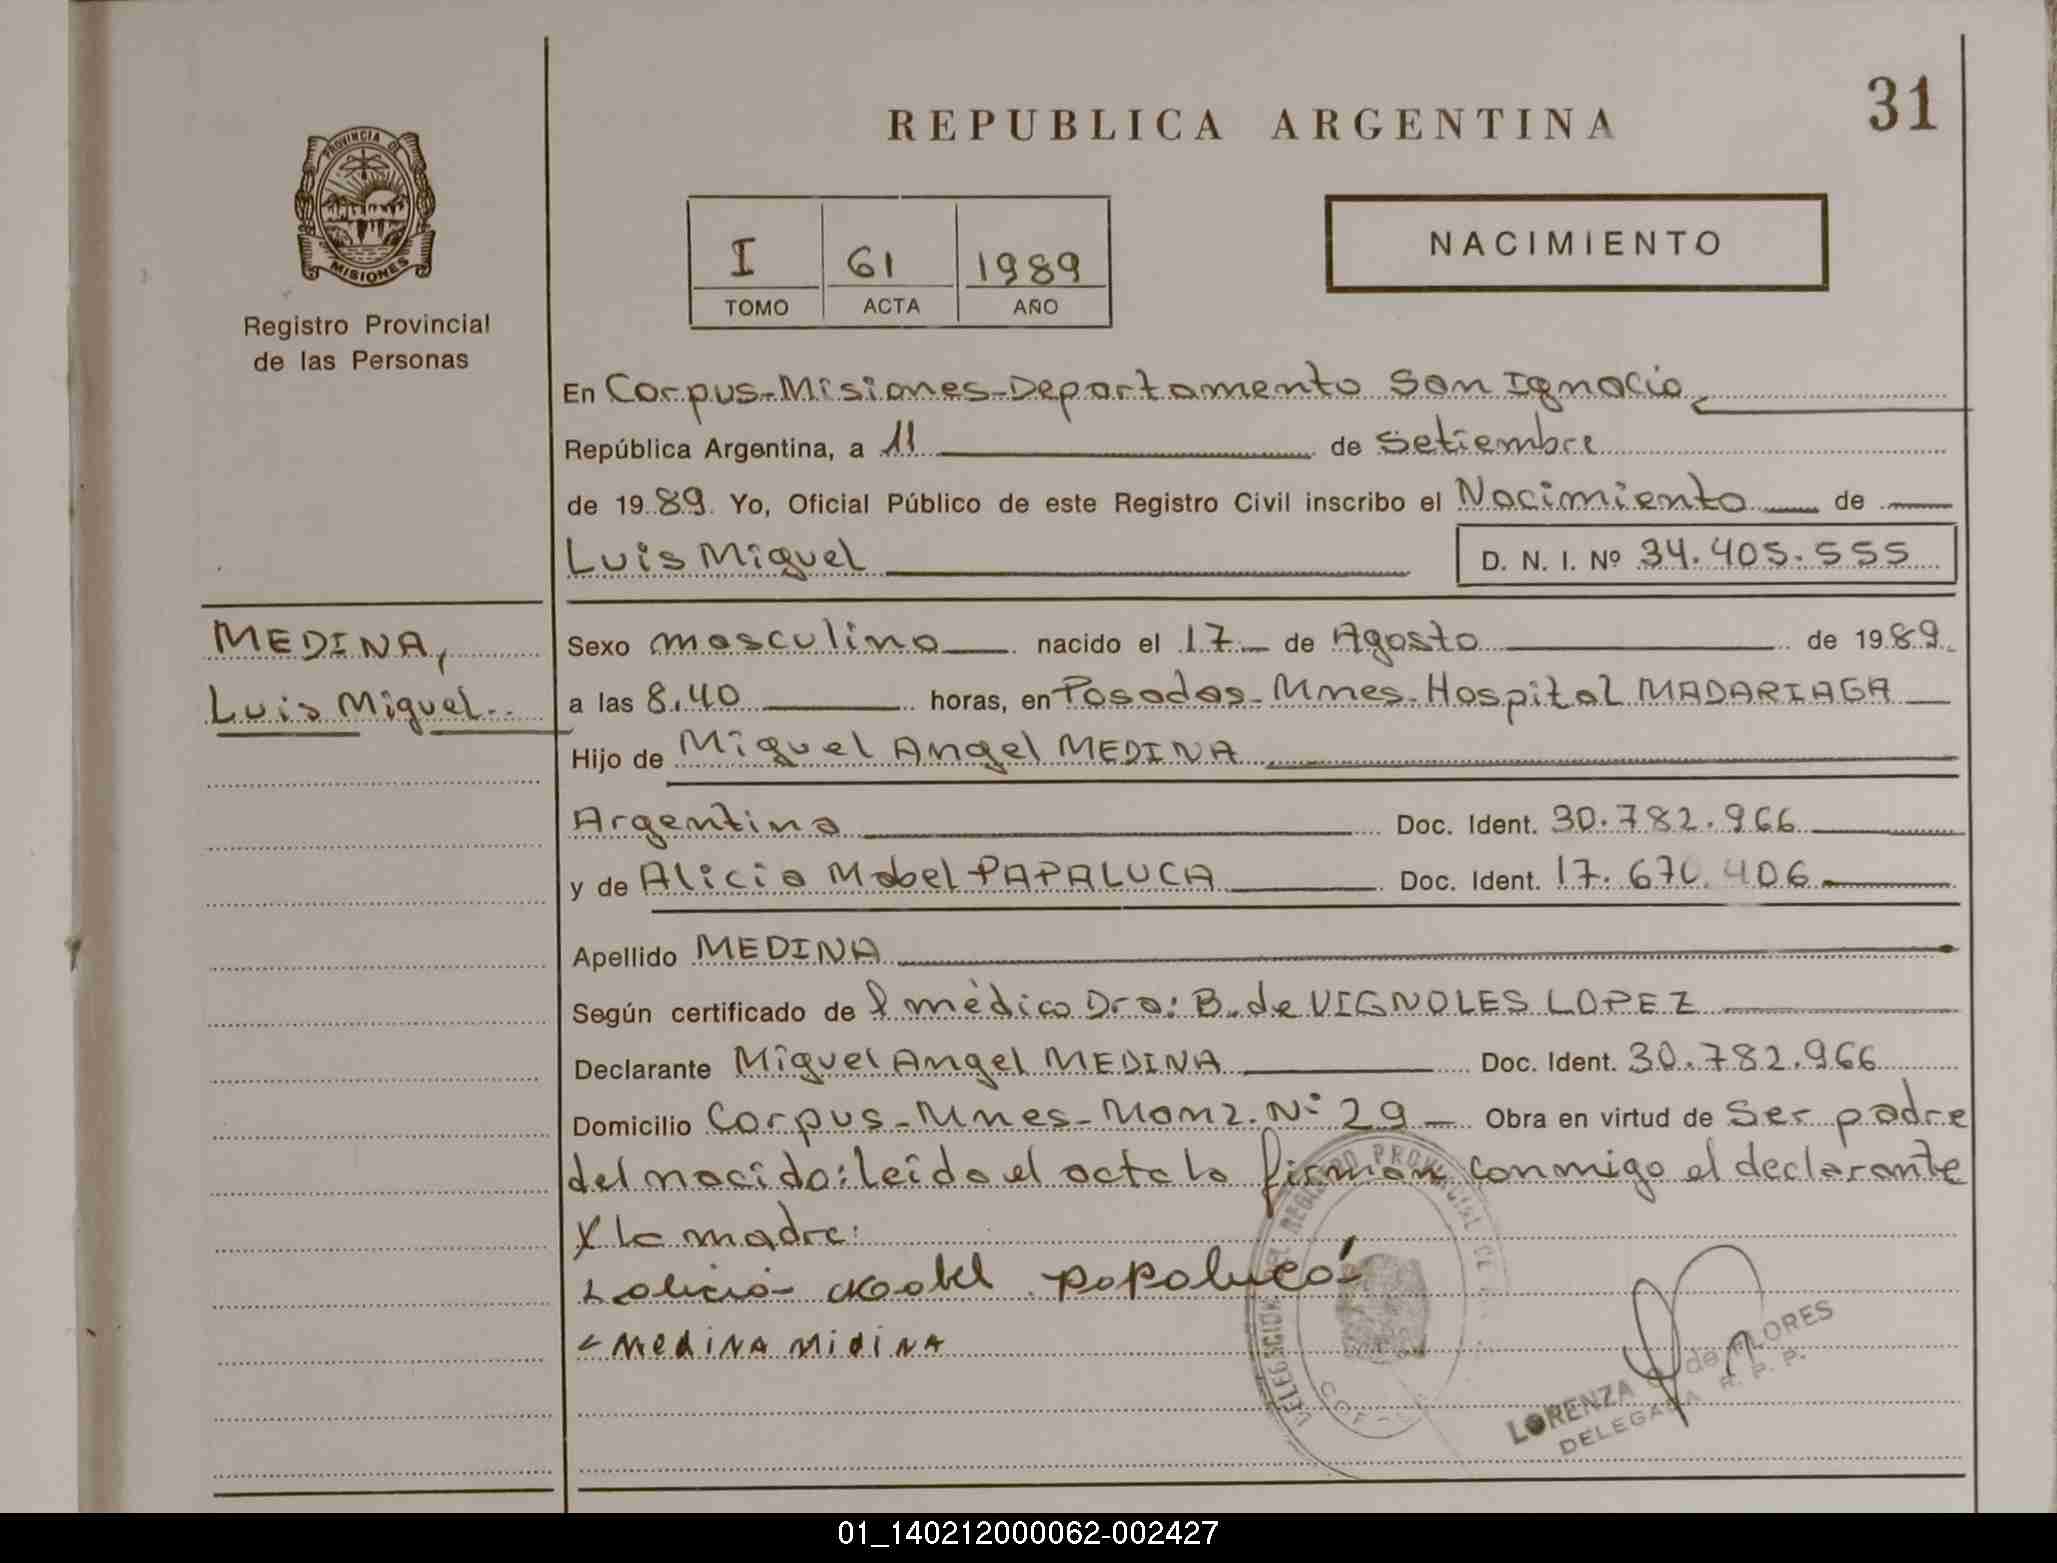 REPUBLICA ARGENTINA
31
PROVINCIA DE
MISIONES
Registro Provincial
de las Personas
I 61 1989
TOMO ACTA AÑO
NACIMIENTO
En Corpus-Misiones-Departamento San Ignacio
República Argentina, a 11 de Setiembre
de 1989. Yo, Oficial Público de este Registro Civil inscribo el Nacimiento de
Luis Miguel D. N. I. Nº 34.405.555
MEDINA,
Luis Miguel..
Sexo masculino nacido el 17 de Agosto de 1989
a las 8,40 horas, en Posadas-Mnes-Hospital MADARIAGA
Hijo de Miguel Angel MEDINA
Argentina Doc. Ident. 30.782.966
y de Alicia Mabel PAPALUCA Doc. Ident. 17.670.406
Apellido MEDINA
Según certificado de l médico Dra: B. de VIGNOLES LOPEZ
Declarante Miguel Angel MEDINA Doc. Ident. 30.782.966
Domicilio Corpus-Mnes-Manz. Nº 29 Obra en virtud de Ser padre
del nacido: leída el acta la firman conmigo el declarante
y la madre:
Papaluca
MEdiNA MidiNA
REGISTRO PROVINCIAL DE
LORENZA de FLORES
DELEGADA R. P. P.
01_140212000062-002427